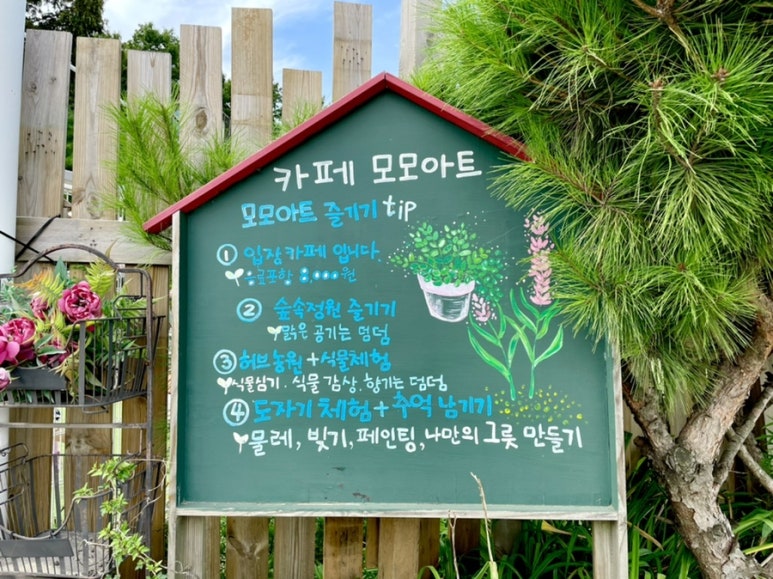 카페 모모아트
모모아트 즐기기 tip
① 입장 카페 입니다.
음료포함 8,000원
② 숲속정원 즐기기
맑은 공기는 덤덤
③ 허브농원 + 식물체험
식물심기. 식물 감상. 향기는 덤덤
④ 도자기 체험 + 추억 남기기
물레, 빚기, 페인팅, 나만의 그릇 만들기